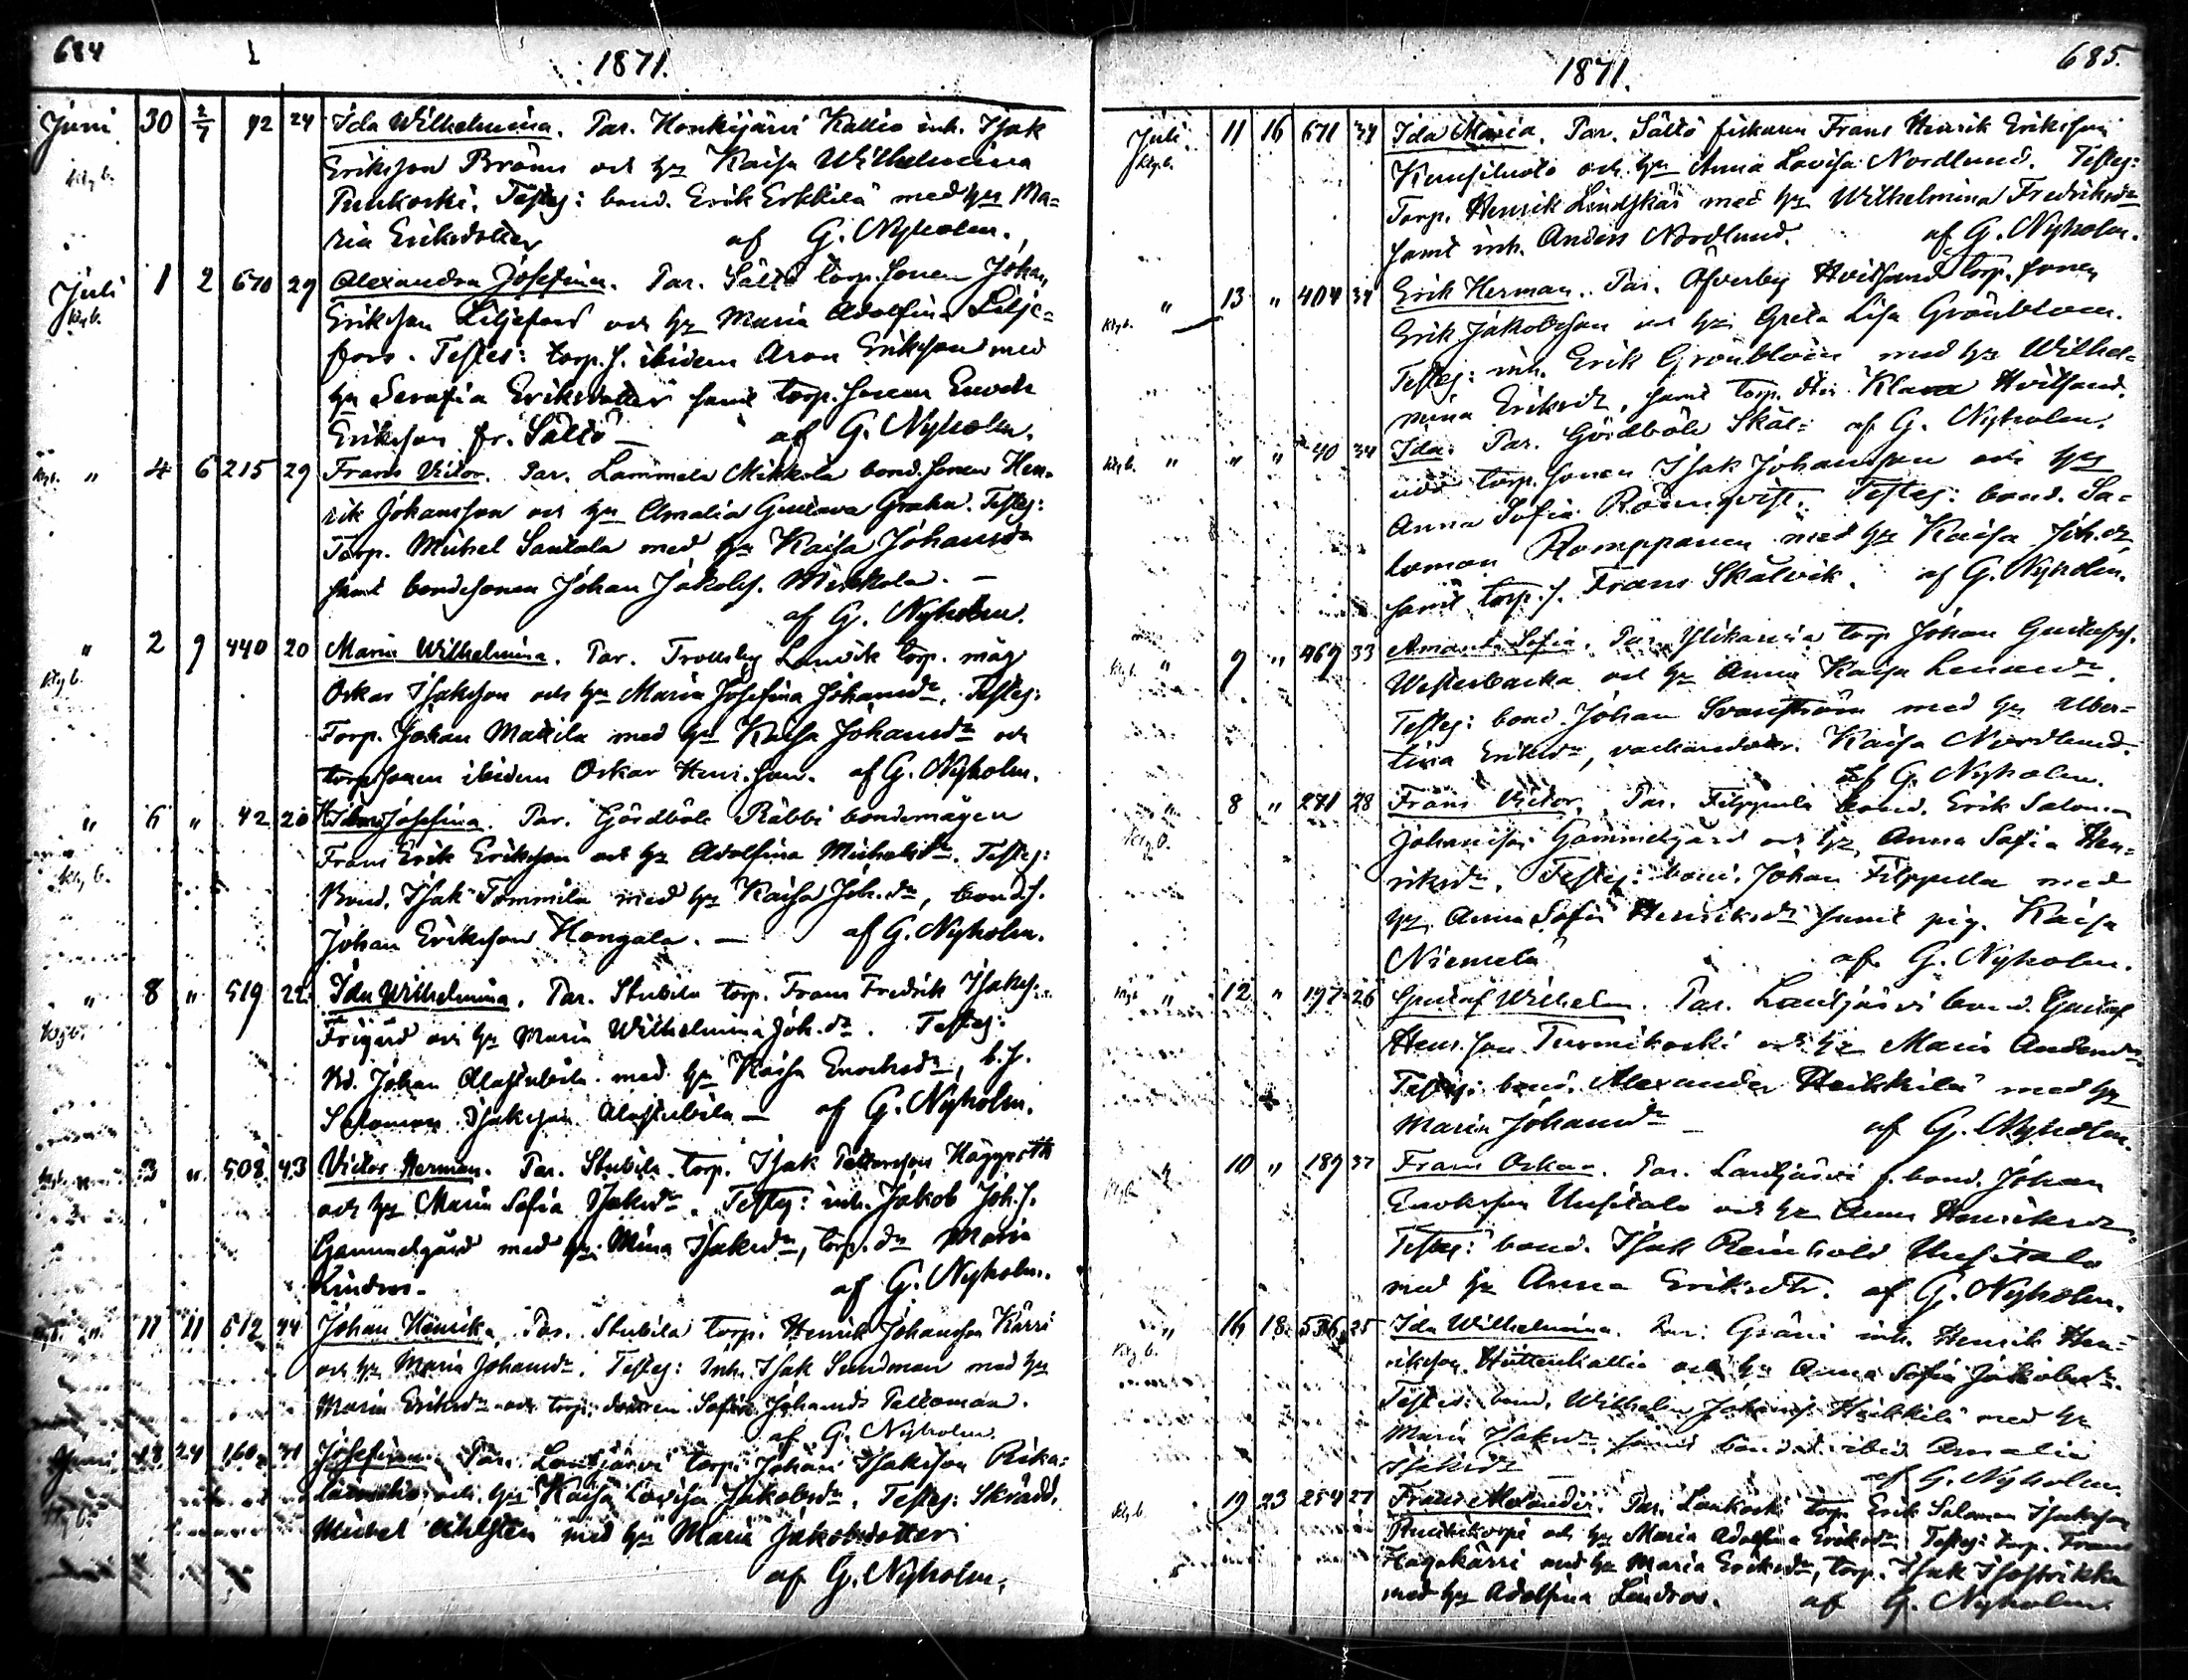 684
1871.
Juni 30 2/7 92 24 Ida Wilhelmina. Par. Honkijärvi Kallio inh. Isak
Kbg b. Eriksson Bröms och hu Kaisa Wilhelmina
Punkoski. Testes: bond. Erik Erkkilä med hu Ma=
ria Eriksdotter af G. Nyholm.
Juli 1 2 670 29 Alexandra Josefina. Par. Sältö torp. sonen Johan
Kbg b. Eriksson Liljefors och hu Maria Adolfina Lilje=
fors. Testes: torp. s. ibidem Aron Eriksson med
hu Serafia Eriksdotter samt torp. sonen Enoch
Eriksson fr. Sältö – af G. Nyholm.
Kbg b. " 4 6 215 29 Frans Victor. Par. Lammela Mikkola bond. sonen Hen=
rik Johansson och hu Amalia Gustava Grahn. Testes:
Torp. Mickel Santala med hu Kaisa Johansdr
samt bondesonen Johan Jakobs. Mikkola. –
af G. Nyholm.
" 2 9 440 20 Maria Wilhelmina. Par. Trollsby Lanvik torp. måg
Kbg b. Oskar Isaksson och hu Maria Josefina Johansdr. Testes:
Torp. Johan Mattila med hu Kaisa Johansdr och
torpsonen ibidem Oskar Henr.son. af G. Nyholm.
" 6 " 42 20 Josefina. Par. Gårdböle Räbbi bondemågen
Kbg b. Frans Erik Eriksson och hu Adolfina Michelsdr. Testes:
Bond. Isak Tommila med hu Kaisa Joh.dr, bond.s.
Johan Eriksson Hongala. – af G. Nyholm.
" 8 " 519 22 Ida Wilhelmina. Par. Stubila torp. Frans Fredrik Isakss.
Kbg b. Frigård och hu Maria Wilhelmina Joh.dr. Testes:
Bd. Johan Alastubila med hu Kaisa Enochsdr, b.s.
Salomon Isaksson Alastubila – af G. Nyholm.
3 " 508 43 Victor Herman. Par. Stubila torp. Isak Häggroth
och hu Maria Sofia Isaksdr. Testes: inh. Jakob Joh.s.
Gammelgård med hu Mina Isaksdr, torp. dr Maria
Lindroos. af G. Nyholm.
11 11 512 44 Johan Henrik. Par. Stubila torp. Henrik Johansson Kärri
och hu Maria Johansdr. Testes: Inh. Isak Sundman med hu
Maria Eriksdr och torp. dottren Sofia Johansdr
af G. Nyholm.
Juni 24 160 31 Josefina. Par. Lankjärvi torp. Johan Isaksson
och hu Kaisa Lovisa Jakobsdr. Testes: Skrädd.
Mickel Ahlsten med hu Maria Jakobsdotter
af G. Nyholm.
685.
1871.
Juli 11 16 671 34 Ida Maria. Par. Sältö fiskaren Frans Henrik Eriksson
Kbg b. och hu Anna Lovisa Nordlund. Testes:
Torp. Henrik Lindskär med hu Wilhelmina Fredriksdr
samt inh. Anders Nordlund. af G. Nyholm.
Kbg b. " 13 " 404 34 Erik Herman. Par. Öfverby Hvitsand torp. sonen
Erik Jakobsson och hu Greta Lisa Grönblom.
Testes: inh. Erik Grönblom med hu Wilhel=
mina Eriksdr, samt torp. dtr Klara Hvitsand.
af G. Nyholm.
Kbg b. " " " 40 34 Ida. Par. Gårdböle Skäl=
torp. sonen Isak Johansson och hu
Anna Sofia Rönnqvist. Testes: bond. Sa=
lomon Romppanen med hu Kaisa Joh.dr
samt torp.s. Frans Skälvik. af G. Nyholm.
Kbg b. 9 " 469 33 Amanda Sofia. Par. torp Johan Gustafss.
Westerbacka och hu Anna Kaisa
Testes: bond. Johan Svanström med hu Alber=
tina Eriksdr, Kaisa Nordlund.
af G. Nyholm.
" 8 " 271 28 Frans Victor. Par. Filppula bond. Erik Salomon
Kbg b. Johansson Gammelgård och hu Anna Sofia Hen=
riksdr. Testes: bond. Johan Filppula med
hu Anna Sofia Henriksdr samt pig. Kaisa
Niemelä af G. Nyholm.
Kbg b. " 12 " 197 26 Gustaf Wilhelm. Par. Lankjärvi bond. Gustaf
Henr.son och hu Maria Andersdr
Testes: bond. Alexander Heikkilä med hu
Maria Johansdr – af G. Nyholm.
Kbg b. " 10 " 189 37 Frans Oskar. Par. Lankjärvi f. bond. Johan
Enoksson Unsitalo och hu Anna Henriksdr
Testes: bond. Isak Reinhold Unsitalo
med hu Anna Eriksdtr. af G. Nyholm.
" 16 18 536 25 Ida Wilhelmina. Par. Gräni inh. Henrik Hen=
Kbg b. riksson Hüttenkallio och hu Anna Sofia Jakobsdr.
Testes: bond. Wilhelm Johanss. Heikkilä med hu
Maria Isaksdr samt bond.d. ibid. Amalia
Isaksdr – af G. Nyholm.
Kbg b. 19 23 254 27 Frans Alexander. Par. Lankoski torp. Erik Salomon Isaksson
och hu Maria Adolfina Eriksdr. Testes: torp. Frans
Hagakärri med hu Maria Eriksdr, torp. Isak
med hu Adolfina Lindroos. af G. Nyholm.